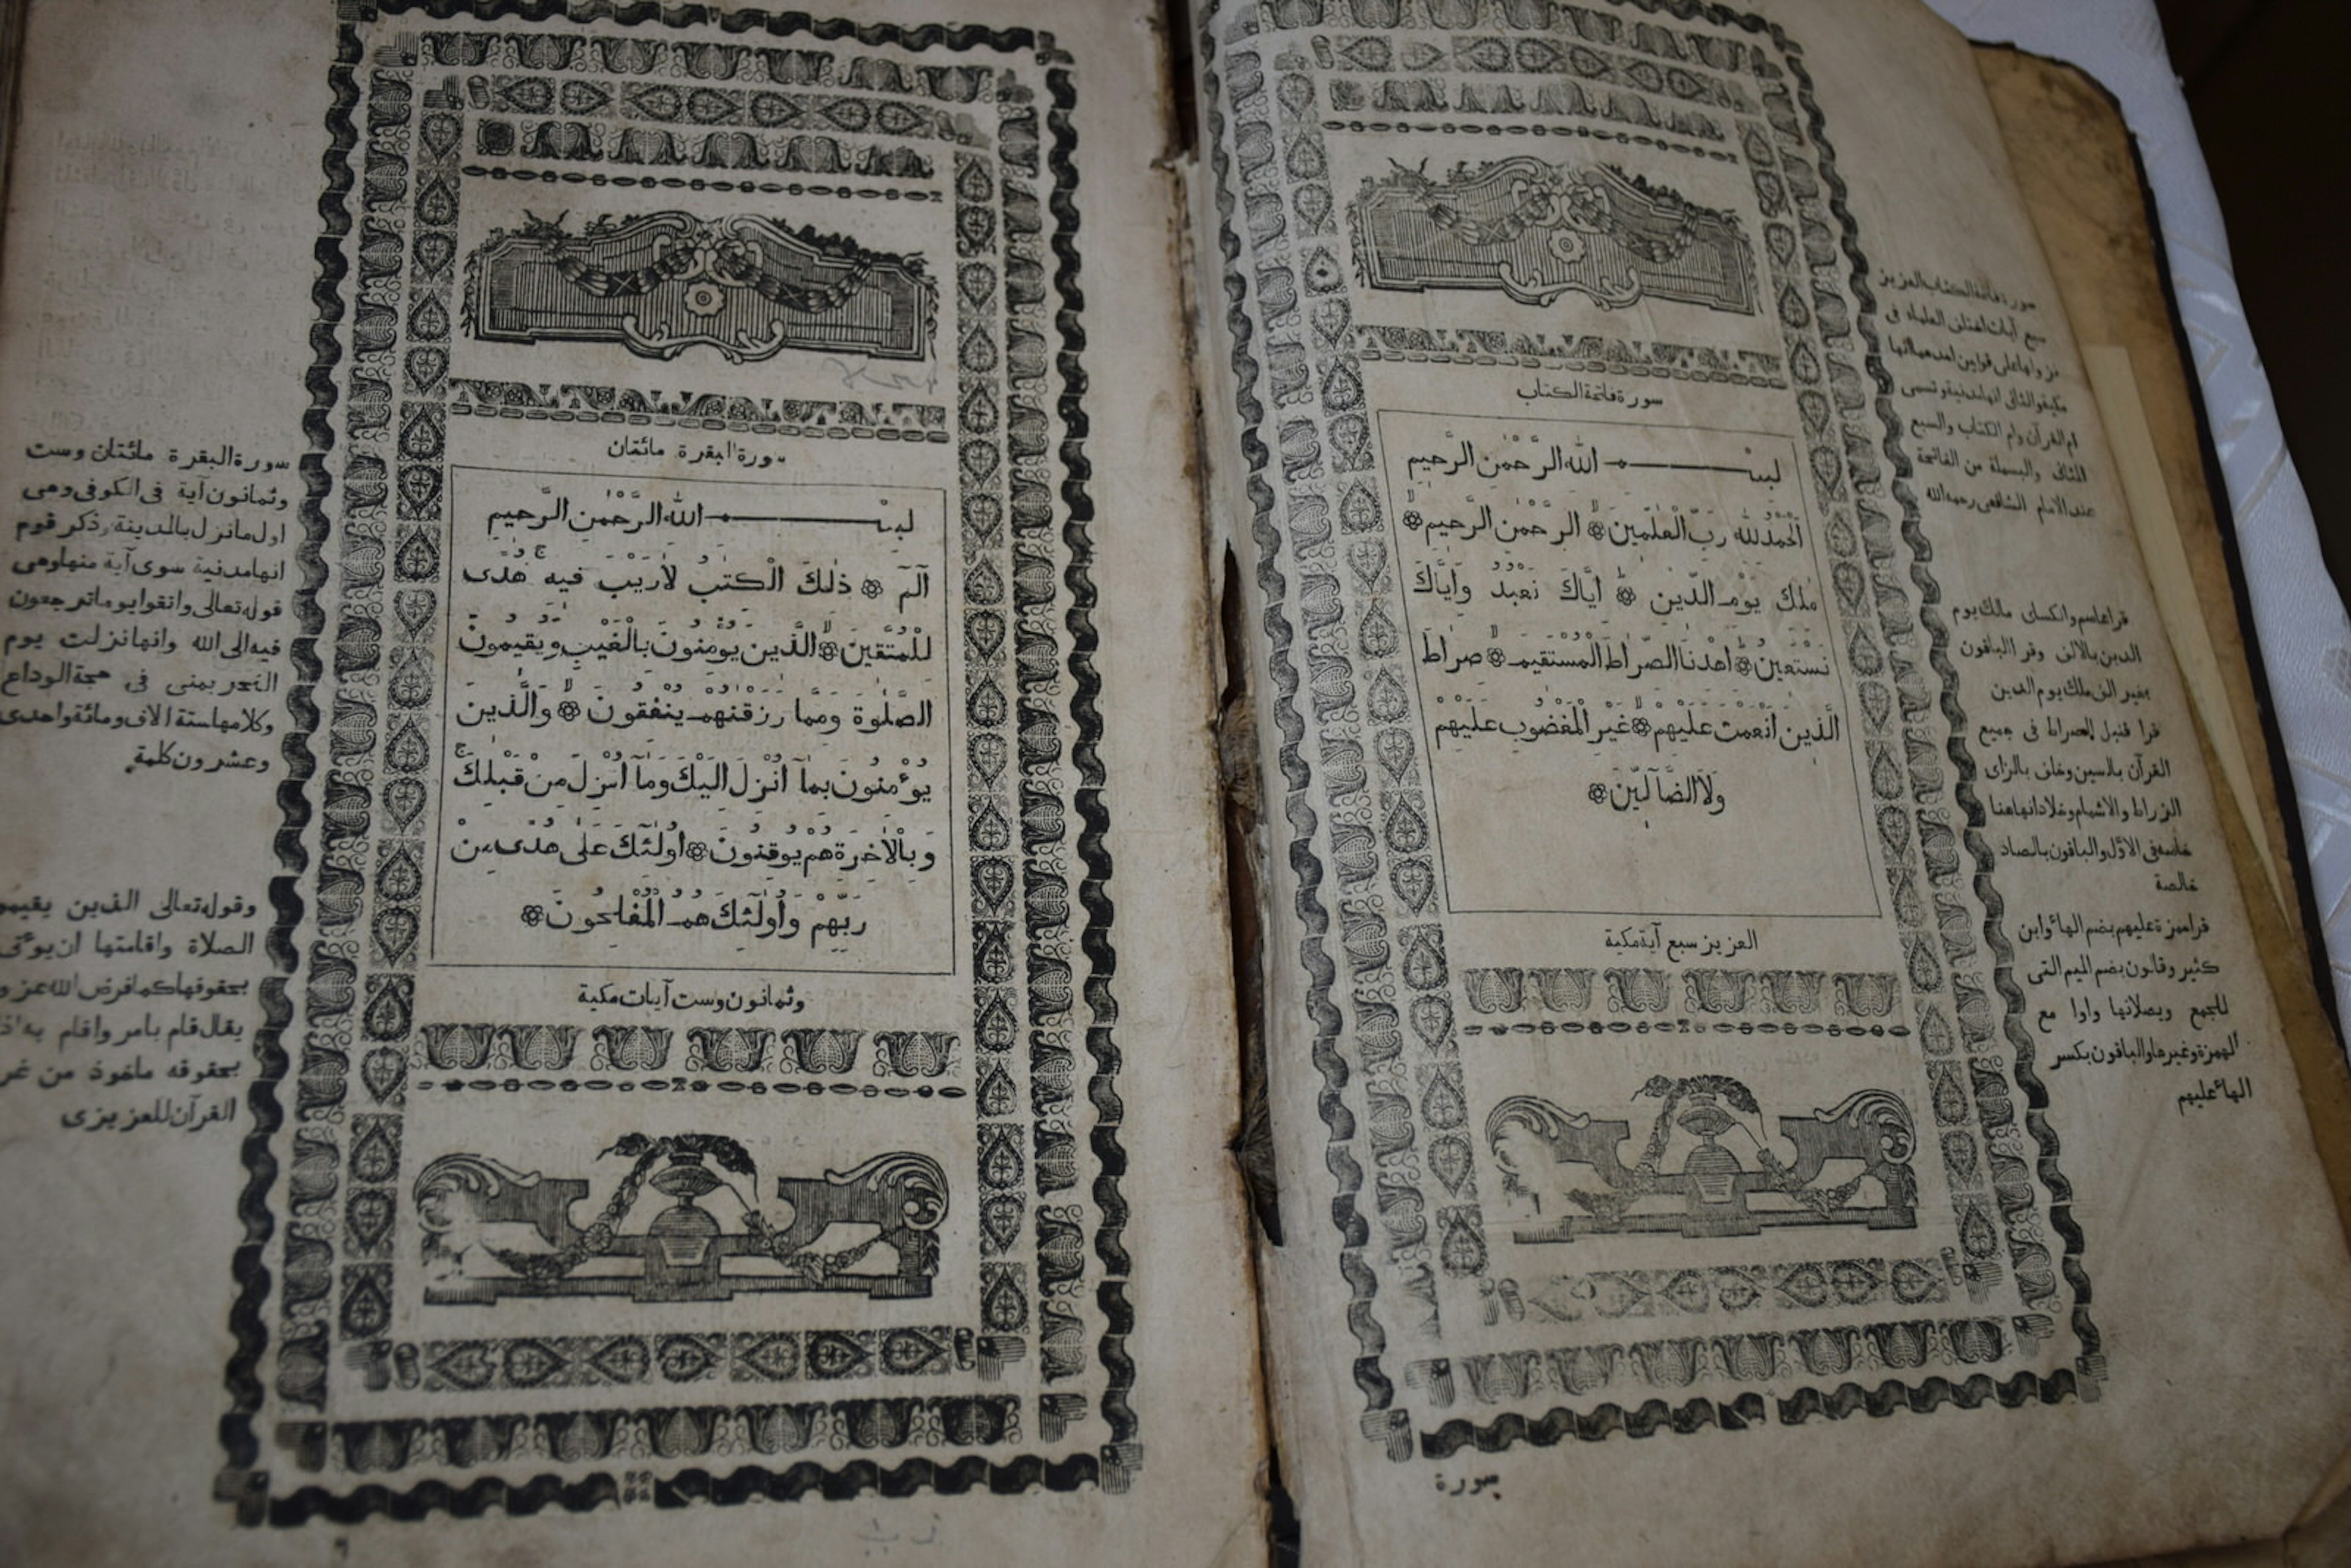 سورة فاتحة الكتاب
بسم الله الرَّحْمٰنِ الرَّحيمِ
اَلْحَمْدُ لِلّٰهِ رَبِّ الْعٰلَمٖينَ ۞ الرَّحْمٰنِ الرَّحيمِ ۞
مٰلِكِ يَوْمِ الدّينِ ۞ اِيَّاكَ نَعْبُدُ وَاِيَّاكَ
نَسْتَعينُ ۞ اِهْدِنَا الصِّرَاطَ الْمُسْتَقيمَ ۞ صِرَاطَ
الَّذينَ اَنْعَمْتَ عَلَيْهِمْ ۞ غَيْرِ الْمَغْضُوبِ عَلَيْهِمْ
وَلَا الضَّآلّينَ ۞
العزيز سبع آية مكية
سورة فاتحة الكتاب العزيز
سبع آيات اختلف العلماء فى
نزولها على قولين احدهما انها
مكية والثانى انها مدنية وتسمى
ام القرآن وام الكتاب والسبع
المثانى والبسملة من الفاتحة
عند الامام الشافعى رحمه الله
قرا عاصم والكسائى مالك يوم
الدين بالالف وقرا الباقون
بغير الف ملك يوم الدين
قرا قنبل الصراط فى جميع
القرآن بالسين وخلف بالزاى
الزراط والاشمام وخلاد انها هنا
خاصة فى الاوّل والباقون بالصاد
خالصة
قرا حمزة عليهم بضم الهاء وابن
كثير وقالون بضم الميم التى
للجمع ويصلانها واوا مع
الهمزة وغيرها والباقون بكسر
الهاء عليهم
سورة
سورة البقرة مائتان
بسم الله الرَّحْمٰنِ الرَّحيمِ
الٓمٓ ۞ ذٰلِكَ الْكِتٰبُ لَارَيْبَ فيهِ هُدًى
لِلْمُتَّقينَ ۞ اَلَّذينَ يُؤْمِنُونَ بِالْغَيْبِ وَيُقيمُونَ
الصَّلٰوةَ وَمِمَّا رَزَقْنٰهُمْ يُنْفِقُونَ ۞ وَالَّذينَ
يُؤْمِنُونَ بِمَآ اُنْزِلَ اِلَيْكَ وَمَآ اُنْزِلَ مِنْ قَبْلِكَ
وَبِالْاٰخِرَةِ هُمْ يُوقِنُونَ ۞ اُولٰٓئِكَ عَلٰى هُدًى مِنْ
رَبِّهِمْ وَاُولٰٓئِكَ هُمُ الْمُفْلِحُونَ ۞
وثمانون وست آيات مكية
سورة البقرة مائتان وست
وثمانون آية فى الكوفى وهى
اول ما نزل بالمدينة وذكر قوم
انها مدنية سوى آية منها وهى
قوله تعالى واتقوا يوما ترجعون
فيه الى الله وانها نزلت يوم
النحر بمنى فى حجة الوداع
وكلامها ستة الاف ومائة واحدى
وعشرون كلمة
وقوله تعالى الذين يقيمو
الصلاة واقامتها ان يؤتى
بحقوقها كما فرض الله عز و
يقال قام بامر واقام به اذ
بحقوقه ماخوذ من غر
القرآن للعزيزى